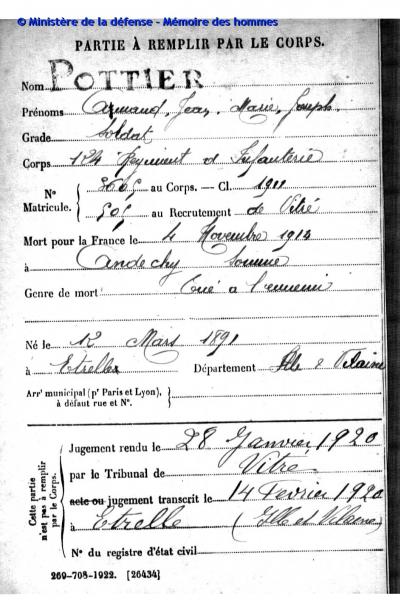 © Ministère de la défense - Mémoire des hommes
PARTIE À REMPLIR PAR LE CORPS.
Nom POTTIER
Prénoms Armand, Jean, Marie, Joseph.
Grade Soldat
Corps 124 Régiment d'Infanterie
N° Matricule. { au Corps. — Cl. 1911
au Recrutement de Vitré
Mort pour la France le 4 Novembre 1914
à Andechy Somme
Genre de mort Tué a l'ennemi
Né le 12 Mars 1891
à Etrelles Département Ille & Vilaine
Arr' municipal (p' Paris et Lyon), }
à défaut rue et N°.
Cette partie n'est pas à remplir par le Corps.
Jugement rendu le 28 Janvier 1920
par le Tribunal de Vitré
acte ou jugement transcrit le 14 Fevrier 1920
à Etrelle (Ille et Vilaine)
N° du registre d'état civil
269-708-1922. [26434]